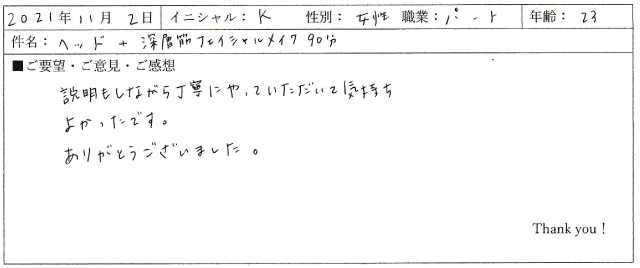 2021年11月2日 イニシャル： K 性別： 女性 職業：パート 年齢： 23
件名： ヘッド + 深層筋フェイシャルメイク 90分
■ご要望・ご意見・ご感想
説明もしながら丁寧にやっていただいて気持ち
よかったです。
ありがとうございました。
Thank you！